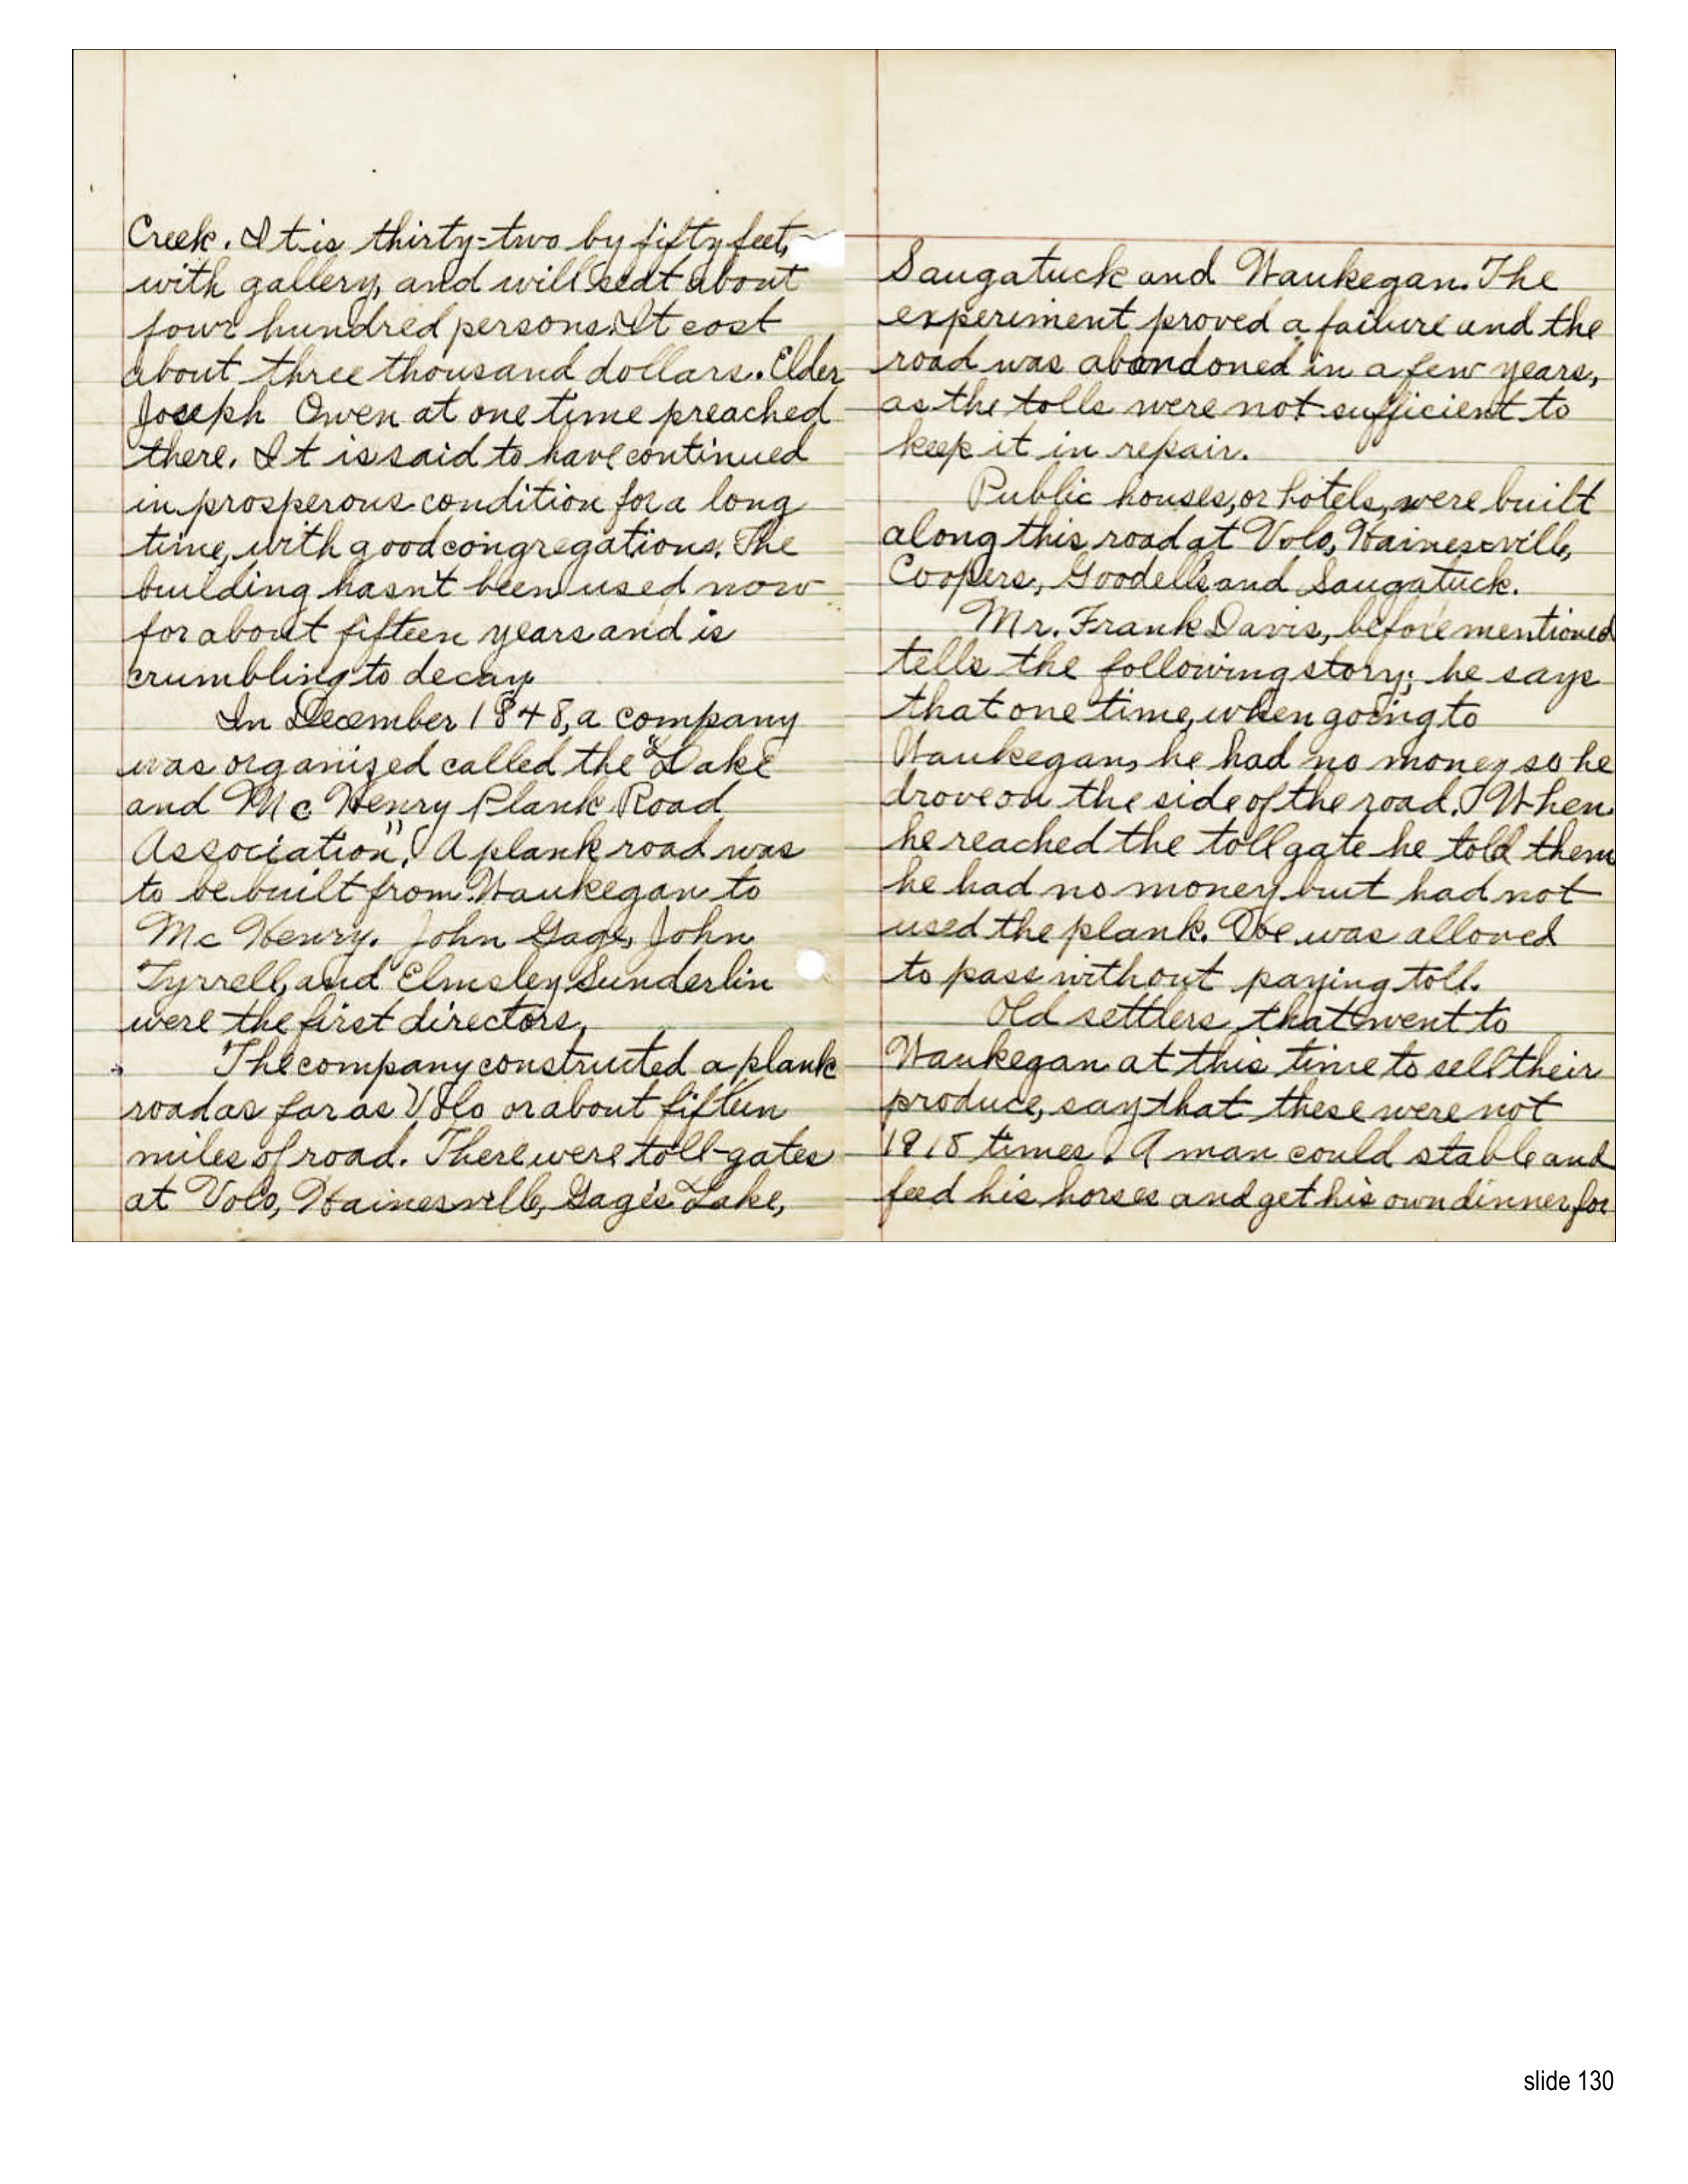 Creek. It is thirty=two by fifty feet,
with gallery, and will seat about
four hundred persons. It cost
about three thousand dollars. Elder
Joseph Owen at one time preached
there. It is said to have continued
in prosperous condition for a long
time, with good congregations. The
building hasn't been used now
for about fifteen years and is
crumbling to decay.
In December 1848, a company
was organized called the "Lake
and Mc Henry Plank Road
Association". A plank road was
to be built from Waukegan to
Mc Henry. John Gage, John
Tyrrell, and Elmsley Sunderlin
were the first directors.
The company constructed a plank
road as far as Volo or about fifteen
miles of road. There were toll-gates
at Volo, Hainesville, Gage's Lake,
Saugatuck and Waukegan. The
experiment proved a failure and the
road was abandoned in a few years,
as the tolls were not sufficient to
keep it in repair.
Public houses, or hotels, were built
along this road at Volo, Hainesville,
Coopers, Goodells and Saugatuck.
Mr. Frank Davis, before mentioned
tells the following story; he says
that one time, when going to
Waukegan, he had no money so he
drove on the side of the road. When
he reached the tollgate he told them
he had no money but had not
used the plank. He was alloved
to pass without paying toll.
Old settlers that went to
Waukegan at this time to sell their
produce, say that these were not
1918 times. A man could stable and
feed his horses and get his own dinner for
slide 130